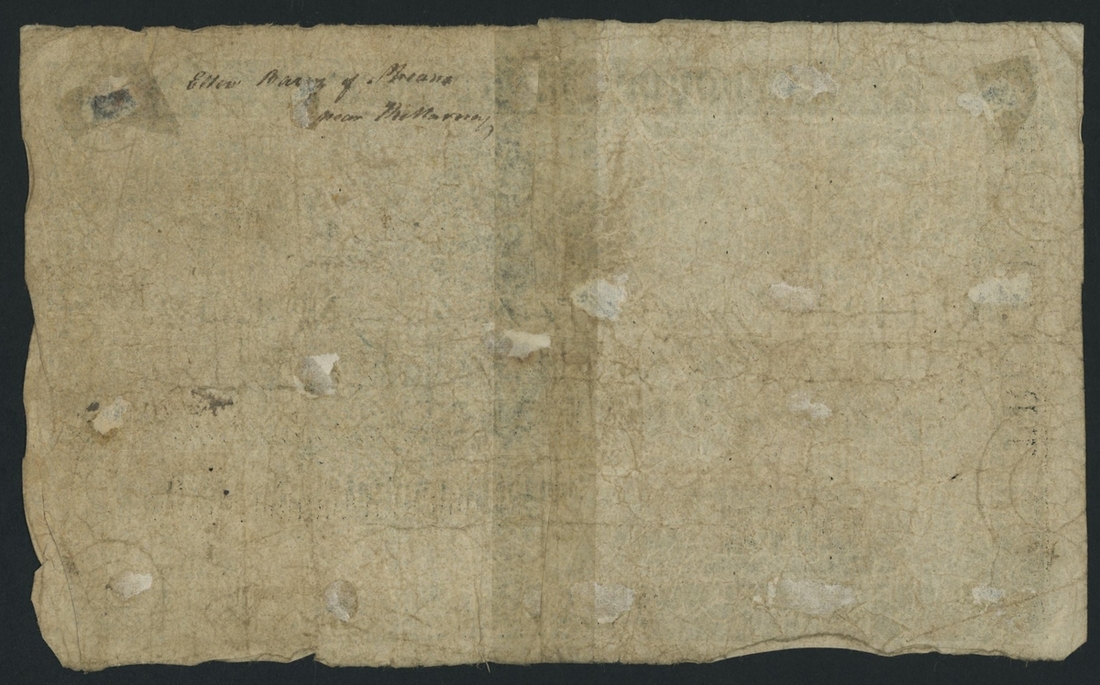 Ellen Barry of
near Killarney